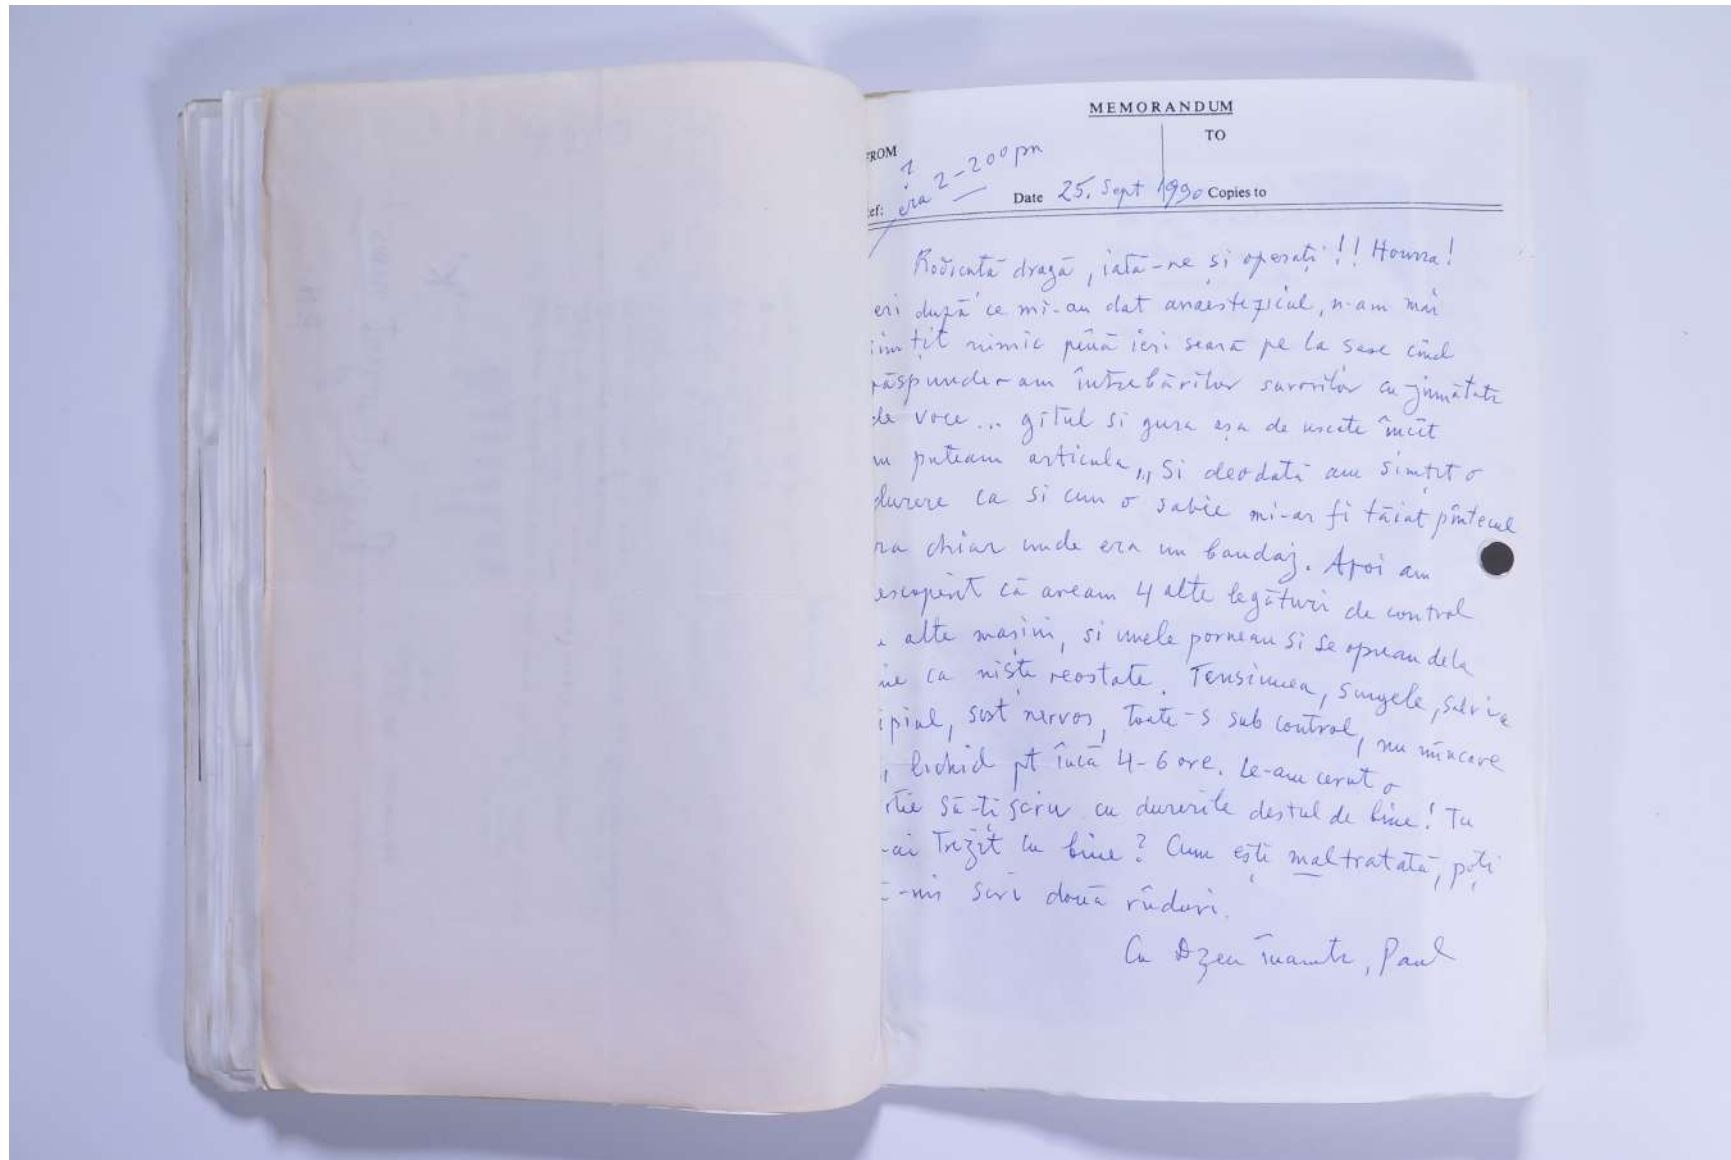 MEMORANDUM
FROM
TO
?
era 2-200 pm
ef:
Date 25. Sept 1990 Copies to
Rodicută dragă, iată-ne și operați!! Hourra!
eri după ce mi-au dat anaestezicul, n-am mai
imțit nimic pînă ieri seară pe la sase cînd
răspundeam întrebărilor surorilor cu jumătate
de voce... gîtul si gura așa de uscate încît
nu puteam articula,,, Si deodată am simțit o
durere ca si cum o sabie mi-ar fi tăiat pîntecul
ra chiar unde era un bandaj. Apoi am
escoperit că aveam 4 alte legături de control
alte mașini, si unele porneau si se opreau dela
ine ca niște reostate. Tensiunea, sungele, saliva
ipiul, sist nervos, toate-s sub control, nu mîncare
lichid pt încă 4-6 ore. Le-am cerut o
rtie să-ti scriu cu durerile destul de bine! Tu
-ai trezit cu bine? Cum ești maltratată, poți
ă-mi scri două rînduri.
Cu Dzeu înainte, Paul